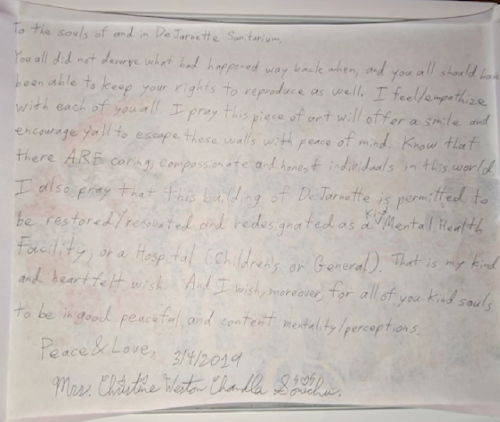 To the souls of and in DeJarnette Sanitarium,
You all did not deserve what had happened way back when, and you all should have
been able to keep your rights to reproduce as well. I feel/empathize
with each of you all. I pray this piece of art will offer a smile and
encourage y'all to escape these walls with peace of mind. Know that
there ARE caring, compassionate and honest individuals in this world.
I also pray that this building of DeJarnette is permitted to
be restored/renovated and redesignated as a Kids/Mental Health
Facility, or a Hospital (Children's or General). That is my kind
and heartfelt wish. And I wish, moreover, for all of you kind souls
to be in good peaceful and content mentality/perceptions.
Peace & Love, 3/4/2019
Mrs. Christine Weston Chandler Sonichu.